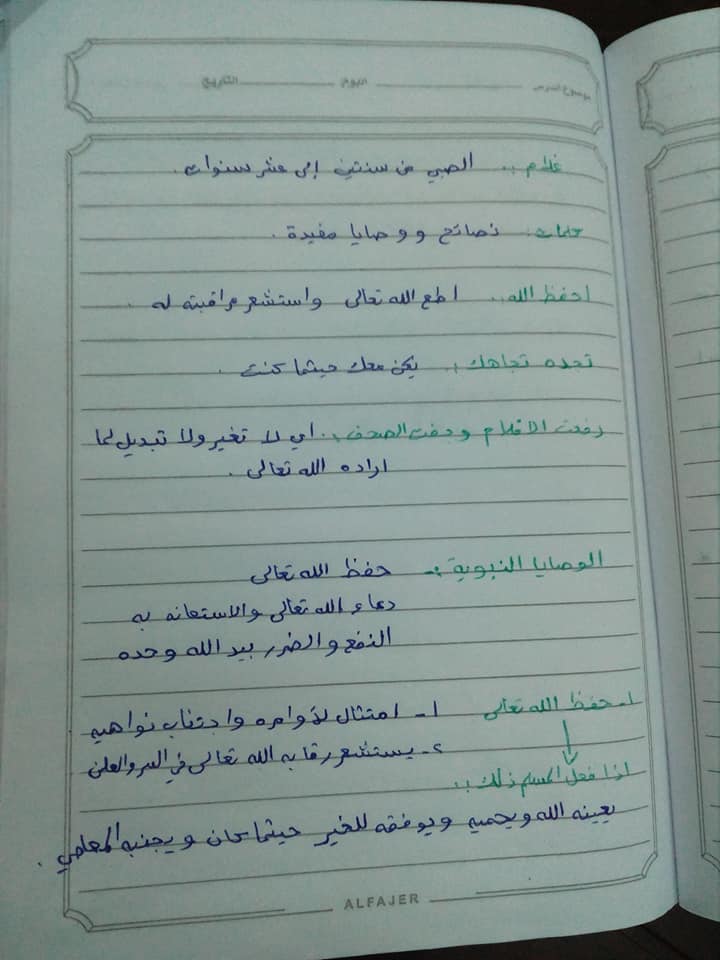 موضوع الدرس اليوم التاريخ
غلام .. الصبي من سنتين إلى عشر سنوات .
كلمات: نصائح ووصايا مفيدة .
احفظ الله.. اطع الله تعالى واستشعر مراقبته له .
تجده تجاهك .. يكن معك حيثما كنت .
رفعت الاقلام وجفت الصحف .. اي لا تغير ولا تبديل لما
اراده الله تعالى .
الوصايا النبوية :- حفظ الله تعالى
دعاء الله تعالى والاستعانه به
النفع والضرر بيد الله وحده
١- حفظ الله تعالى ١- امتثال لأوامره واجتناب نواهيه
٢- يستشعر رقابه الله تعالى في السر والعلن
اذا فعل المسلم ذلك ..
يعينه الله ويحميه ويوفقه للخير حيثما كان ويجنبه المعاصي .
ALFAJER